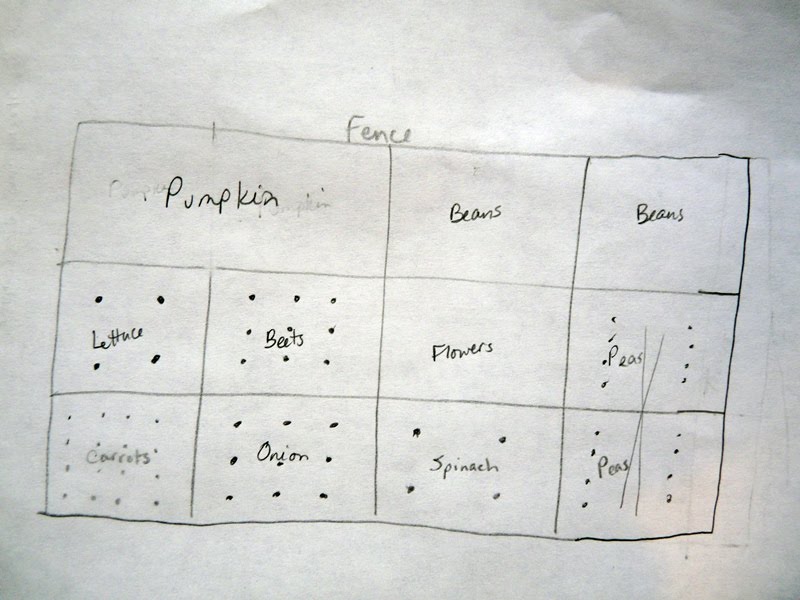 Fence
Pumpkin
Beans
Beans
Lettuce
Beets
Flowers
Peas
Carrots
Onion
Spinach
Peas